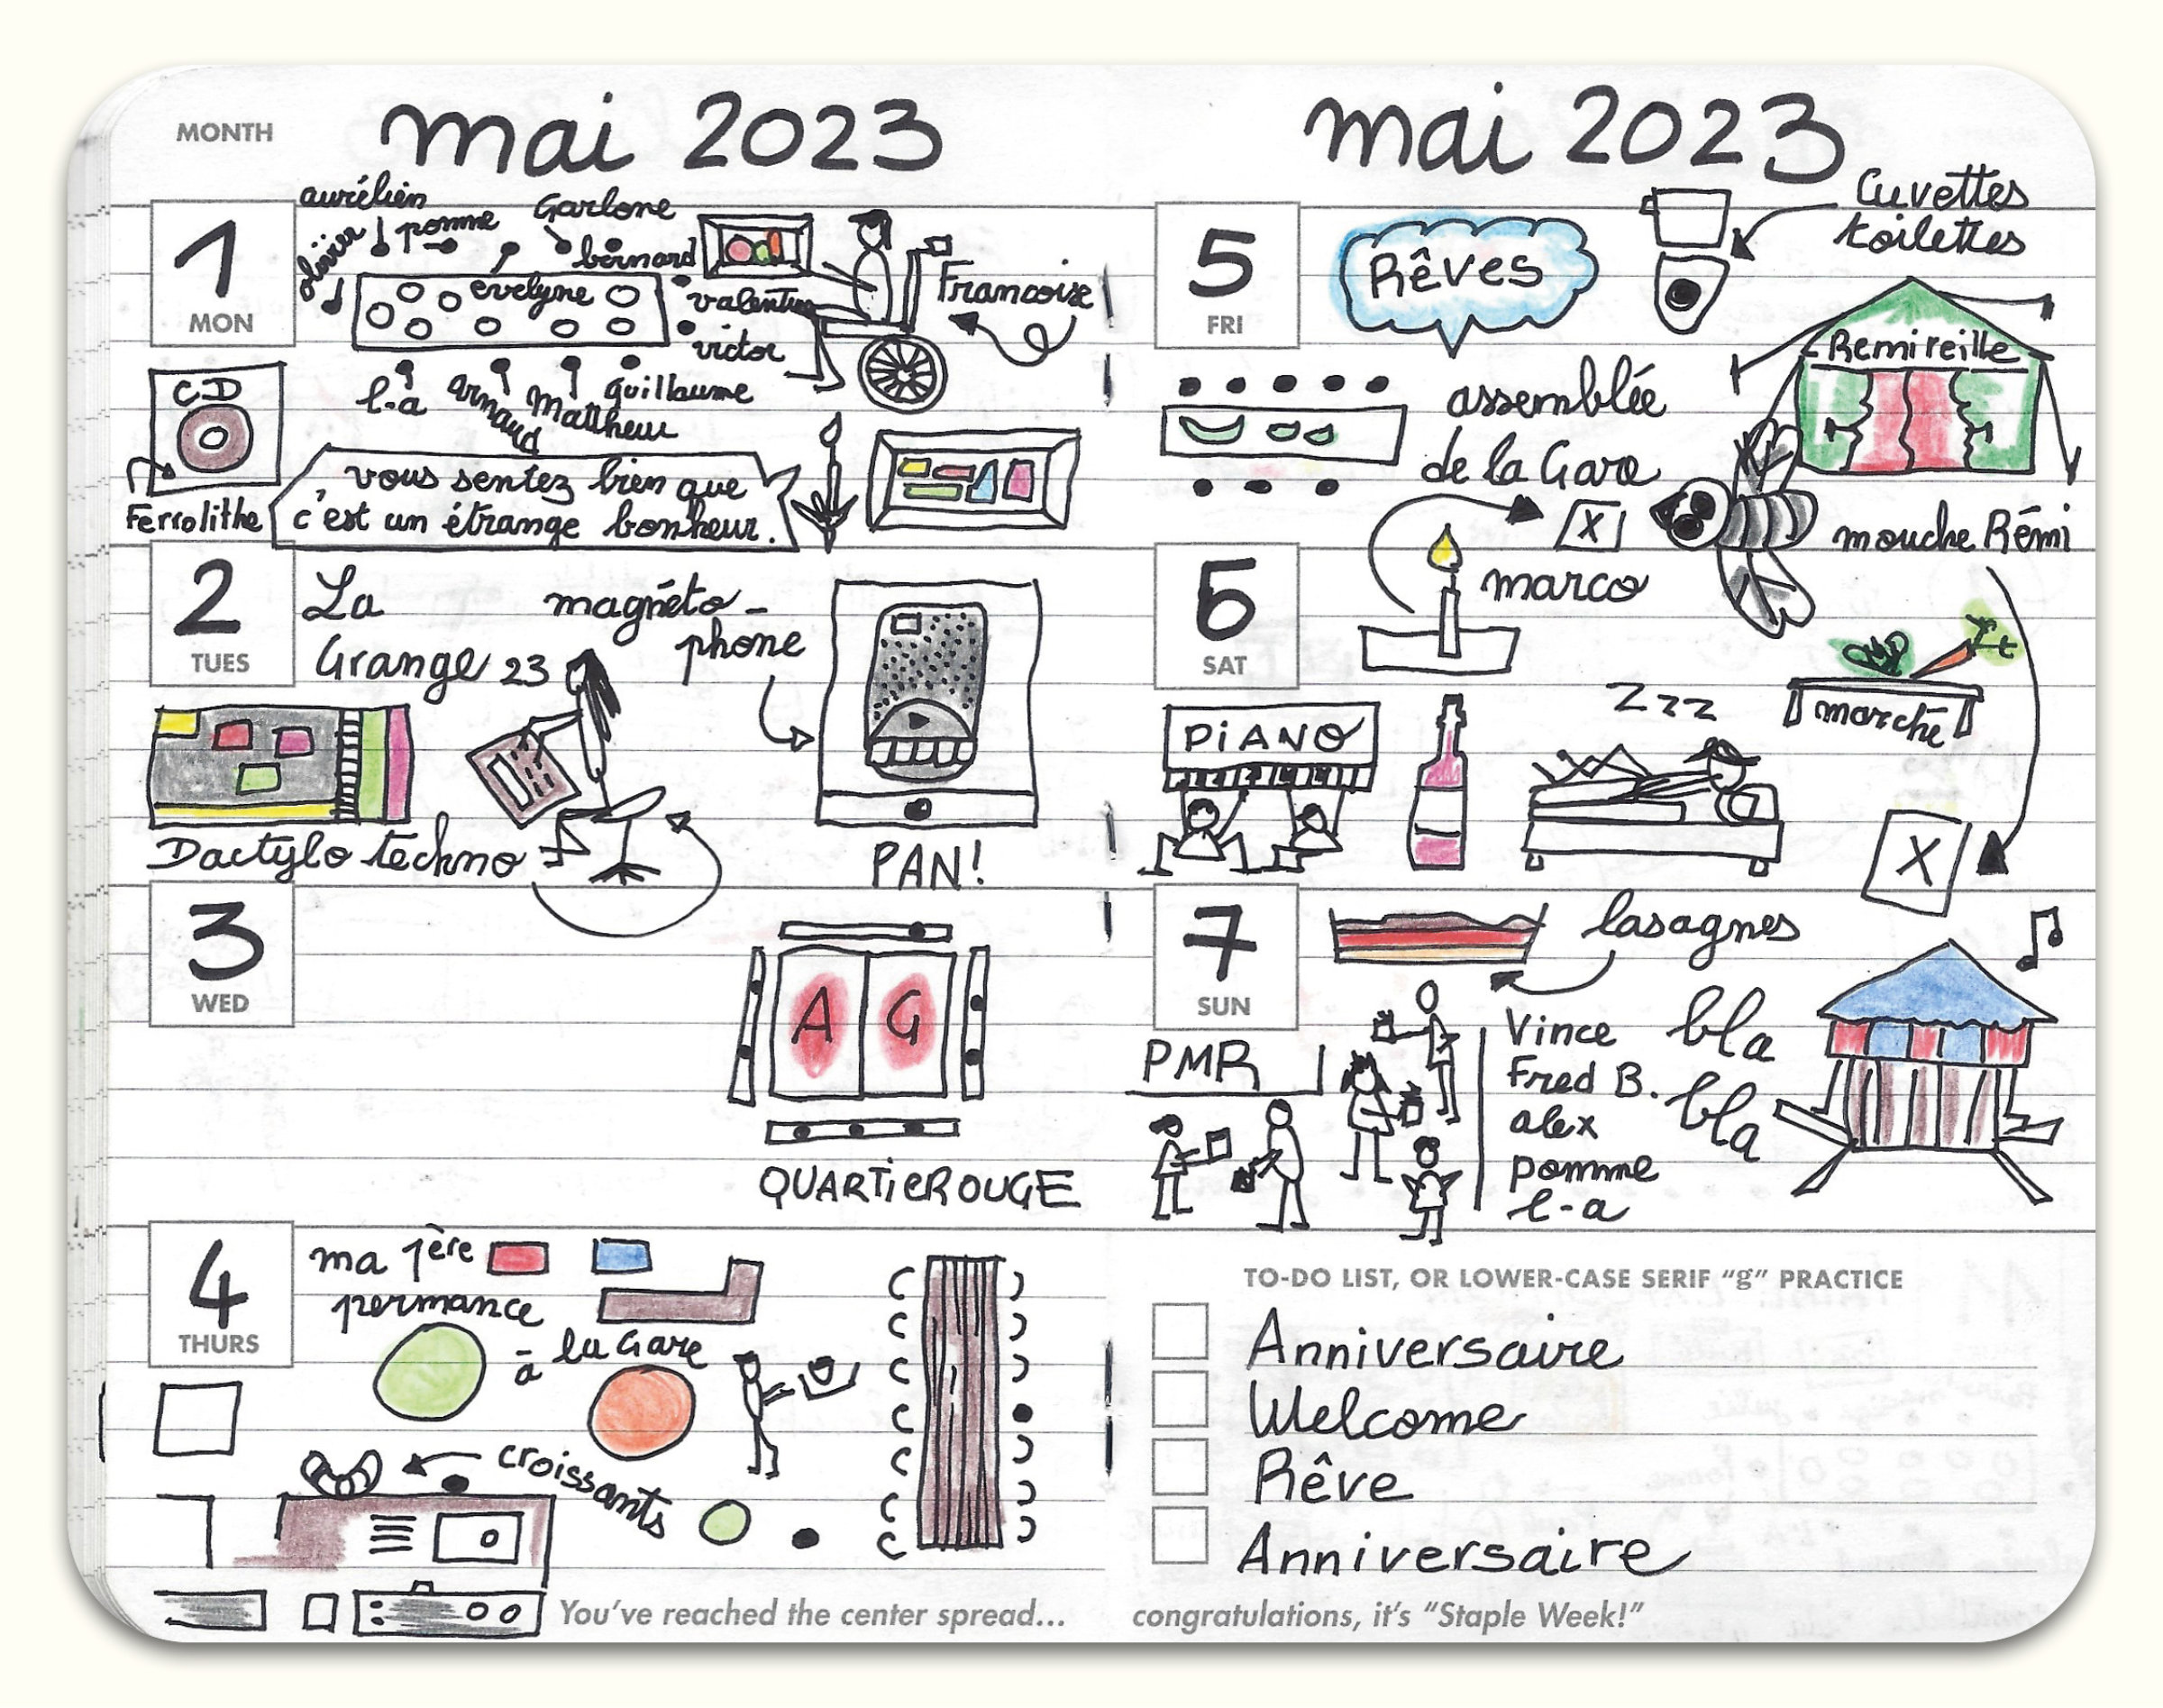 MONTH
mai 2023
1
MON
aurélien
olivier
pomme
Garlone
bernard
evelyne
valentin
victor
Francoise
l-a
arnaud
Matthew
Guillaume
CD
Ferrolithe
vous sentez bien que
c'est un étrange bonheur.
2
TUES
La
Grange 23
magnéto-
phone
Dactylo techno
PAN!
3
WED
A G
QUARTiEROUGE
4
THURS
ma 1ère
permance
à la Gare
croissants
You've reached the center spread...
mai 2023
5
FRI
Rêves
Cuvettes
toilettes
Remireille
assemblée
de la Gare
X
mouche Rémi
6
SAT
marco
PiANO
Zzz
marché
X
7
SUN
lasagnes
PMR
Vince
Fred B.
alex
pomme
l-a
bla
bla
TO-DO LIST, OR LOWER-CASE SERIF "g" PRACTICE
Anniversaire
Welcome
Rêve
Anniversaire
congratulations, it's "Staple Week!"